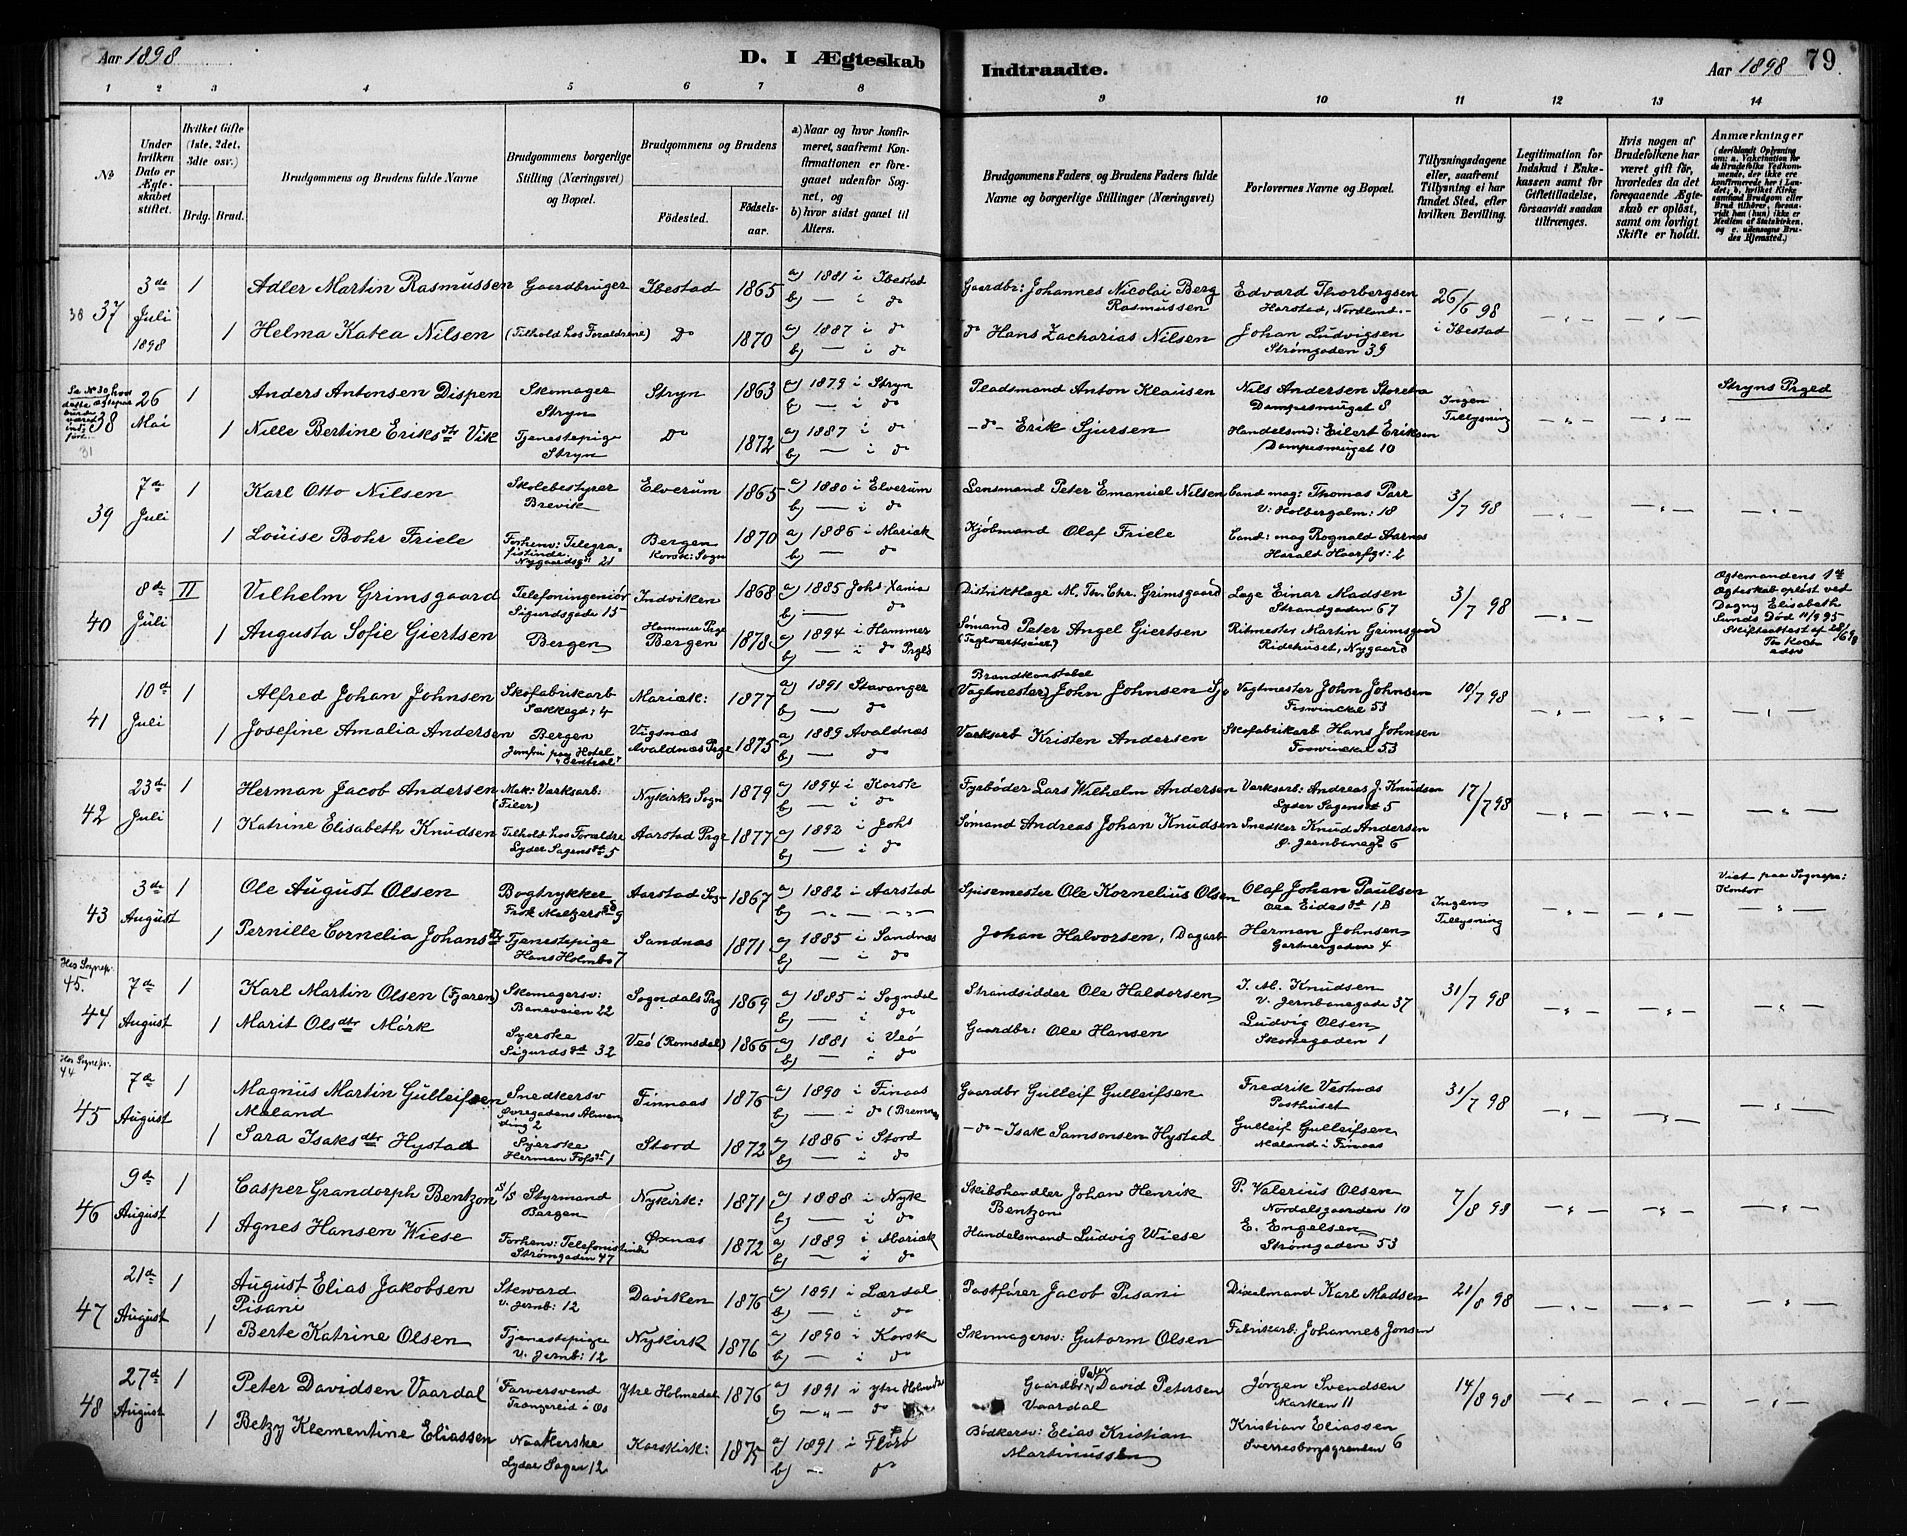 Aar 1898
D. I Ægteskab
Indtraadte.
Aar 1898
79.
1 2 3 4 5 6 7 8 9 10 11 12 13 14
No
Under hvilken Dato er Ægteskabet stiftet.
Hvilket Gifte (1ste, 2det, 3die osv.)
Brdg. Brud.
Brudgommens og Brudens fulde Navne
Brudgommens borgerlige Stilling (Næringsvei) og Bopæl.
Brudgommens og Brudens
Fødested.
Fødselsaar.
a) Naar og hvor konfirmeret, saafremt Konfirmationen er foregaaet udenfor Sognet, og
b) hvor sidst gaaet til Alters.
Brudgommens Faders, og Brudens Faders fulde Navne og borgerlige Stillinger (Næringsvei)
Forlovernes Navne og Bopæl.
Tillysningsdagene eller, saafremt Tillysning ei har fundet Sted, efter hvilken Bevilling.
Legitimation for Indskud i Enkekassen samt for Giftetilladelse, forsaavidt saadan tiltrænges.
Hvis nogen af Brudefolkene har været gift før, hvorledes da det foregaaende Ægteskab er opløst, samt om lovligt Skifte er holdt.
Anmærkninger
37 3de Juli 1898
1 Adler Martin Rasmussen Gaardbruger Ibestad 1865 a) 1881 i Ibestad b) — i do Gaardbr: Johannes Nicolai Berg Rasmussen Edvard Thorbergsen Harstad, Nordland. 26/6 98 i Ibestad
1 Helma Katea Nilsen (Tilhold hos Foraldrene) Do 1870 a) 1887 i do b) — i do do Hans Zacharias Nilsen Johan Ludvigsen Strømgaden 39
38 26 Mai
1 Anders Antonsen Dispen Skomager Stryn Stryn 1863 a) 1879 i Stryn b) — i do Pladsmand Anton Klausen Nils Andersen Storetra Dampesmuget 8 Ingen Tillysning Stryns Prgeld
1 Nille Bertine Eriksdtr Vik Tjenestepige Stryn Do 1872 a) 1887 i do b) — i do —do— Erik Sjursen Handelsmd: Eilert Eriksen Dampesmuget 10
39 7de Juli
1 Karl Otto Nilsen Skolebestyrer Brevik Elverum 1865 a) 1880 i Elverum b) — i do Lensmand Peter Emanuel Nilsen Cand mag: Thomas Parr V: Holbergalm: 18 3/7 98
1 Louise Bohr Friele Forhenv: Telegrafistinde. Nygaardsgt 21 Bergen Korsk: Sogn 1870 a) 1886 i Mariak b) — do Kjøbmand Olaf Friele Cand: mag Rognald Aarnas Harald Haarfgr: 2
40 8de Juli
II Vilhelm Grimsgaard Telefoningeniør Sigurdsgade 15 Indviken 1868 a) 1885 Johs Xania b) — do Distriktlæge M. Th. Chr. Grimsgaard Læge Einar Madsen Strandgaden 67 3/7 98 Egtemandens 1ste Ægteskab opløst ved Dagny Elisabeth Lunds Død 11/9 95
1 Augusta Sofie Giertsen Bergen Hammer Prgr Bergen 1878 a) 1894 i Hammer b) — i do Prgld Sømand Peter Angel Giertsen (Teglværkseier) Ritmester Martin Grimsgaard Ridehuset, Nygaard
41 10de Juli
1 Alfred Johan Johnsen Skofabrikarb Sækkegd: 4 Mariæk: 1877 a) 1891 Stavanger b) — do Brandkonstabel (Vagtmester) John Johnsen Vagtmester John Johnsen Foswinckel 53 10/7 98
1 Josefine Amalia Andersen Bergen Jomfru paa Hotel "Central" Vigsnæs Avaldnæs Prge 1875 a) 1889 Avaldnæs b) — do Værksarb Kristen Andersen Skofabrikarb Hans Johnsen Foswinckel 53
42 23de Juli
1 Herman Jacob Andersen Mek: Værksarb: (Filer) Nykirks Sogn 1879 a) 1894 i Korsk b) — i do Fyrbøder Lars Wilhelm Andersen Værksarb: Andreas J. Knudsen Lyder Sagensgt 5 17/7 98
1 Katrine Elisabeth Knudsen Tilhold hos Forældre Lyder Sagensgt 5 Aarstad Prge 1877 a) 1892 i Johs b) — i do Sømand Andreas Johan Knudsen Snedker Knud Andersen Ø. Jernbanegd 6
43 3de August
1 Ole August Olsen Bogtrykker Frøk Meltzersgd 9 Aarstad Sogn 1867 a) 1882 i Aarstad Spisemester Ole Kornelius Olsen Olaf Johan Paulsen Ole Eidesgt 1B Ingen Tillysning Viet paa Sognepr: Kontor
1 Pernille Cornelia Johansdtr Tjenestepige Hans Holmbo 7 Sandnæs 1871 a) 1885 i Sandnæs b) — i do Johan Halvorsen, Dagarb Herman Johnsen Gartnergaden 4
Hos Sognepr. 45.
44 7de August
1 Karl Martin Olsen (Fjæren) Skomagersv: Baneveien 22 Sogndals Prg 1869 a) 1885 i Sogndal b) — i do Strandsidder Ole Haldorsen J. M. Knudsen V. Jernbanegade 37 31/7 98
1 Marit Olsdtr Mörk Syerske Sigurdsgd 32 Veø (Romsdal) 1866 a) 1881 i Veø b) — i do Gaardbr: Ole Hansen Ludvig Olsen Skottegaden 1
Hos Sognepr. 44
45 7de August
1 Magnus Martin Gulleifsen Mæland Snedkersv Øvregadens Almending 2 Finnaas 1876 a) 1890 i Finaas b) — i do (Bremnes Gaardbr Gulleif Gulleifsen Fredrik Vestnæs Posthuset 31/7 98
1 Sara Isaksdtr Hystad Syerske Herman Fossgt 1 Stord 1872 a) 1886 i Stord b) — i do —do— Isak Samsonsen Hystad Gulleif Gulleifsen Mæland i Finaas
46 9de August
1 Casper Grandorph Bentzon S/S Styrmand Bergen Nykirk: 1871 a) 1888 i Nyk b) — i do Skibshandler Johan Henrik Bentzon P. Valerius Olsen Nordalsgaarden 10 7/8 98
1 Agnes Hansen Wiese Forhenv: Telefonistinde Strømgaden 47 Øxnæs 1872 a) 1889 i Mariæk b) — i do Handelsmand Ludvig Wiese E. Engelsen Strømgaden 53
47 21de August
1 August Elias Jakobsen Pisani Steward V. Jernb: 12 Daviken 1876 a) 1891 i Lærdal b) — i do Postfører Jacob Pisani Dixelmand Karl Madsen 21/8 98
1 Berte Katrine Olsen Tjenestepige V. Jernb: 12 Nykirk 1876 a) 1890 i Korsk b) — i do Skomagersv: Gutorm Olsen Fabrikarb: Johannes Jonsen
48 27de August
1 Peter Davidsen Vaardal Farversvend Trængereid i Os Ytre Holmedal 1876 a) 1891 i ytre Holmedal b) — do Gaardbr Peter David Petersen Vaardal Jørgen Svendsen Marken 11 14/8 98
1 Betzy Klementine Eliassen Naatlerske Lyder Sagen 12 Korskirk: 1875 a) 1891 i Florø b) — do Bødkersv: Elias Kristian Martinussen Kristian Eliassen Sverresborgsgrenden 6